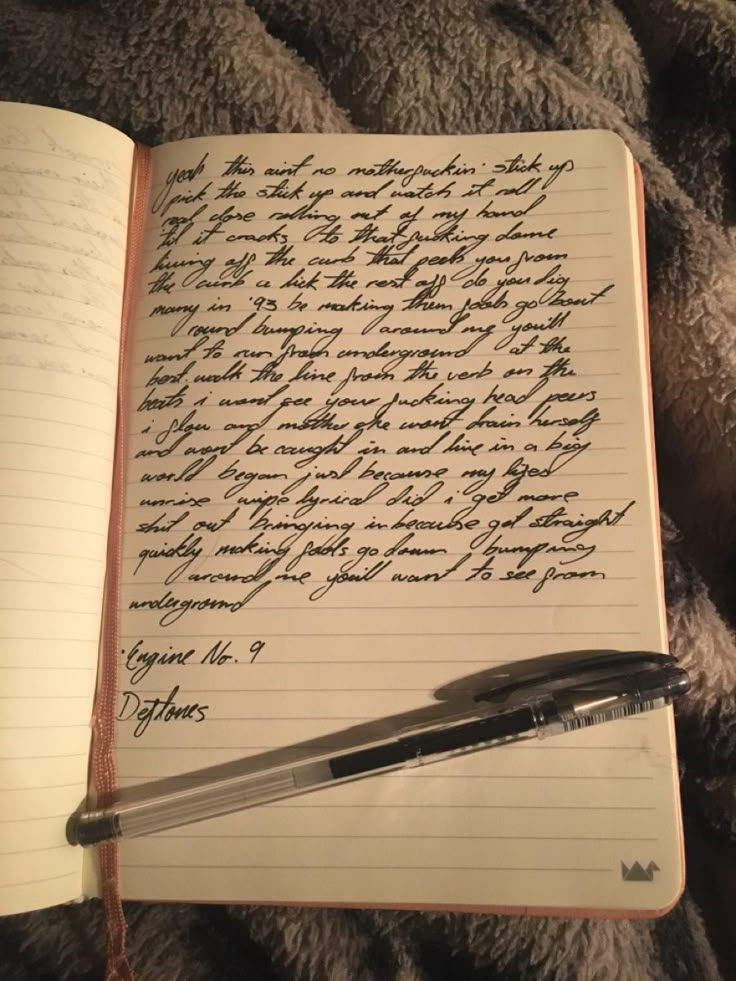 yeah this aint no motherfuckin' stick up
pick the stick up and watch it roll
real close rolling out of my hand
til it cracks to that fucking dome
living off the curb that peels you from
the curb a lick the rest off do you dig
many in '93 be making them fools go bout
round bumping around me you'll
want to run from underground at the
best walk the line from the verb on the
beats i wont see your fucking head peers
i flow and mother she wont drain herself
and wont be caught in and live in a big
world began just because my
unrise wipe lyrical did i get more
shit out bringing in because get straight
quickly making fools go down bumping
around me you'll want to see from
underground
Engine No. 9
Deftones